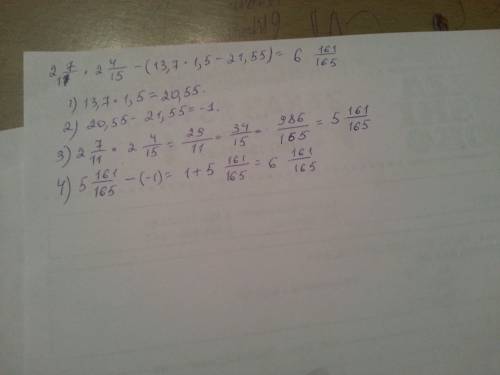 2 7/11 · 2 4/15 – (13,7 · 1,5 – 21,55) = 6 161/165
1) 13,7 · 1,5 = 20,55.
2) 20,55 – 21,55 = –1.
3) 2 7/11 · 2 4/15 = 29/11 · 34/15 = 986/165 = 5 161/165
4) 5 161/165 – (–1) = 1 + 5 161/165 = 6 161/165